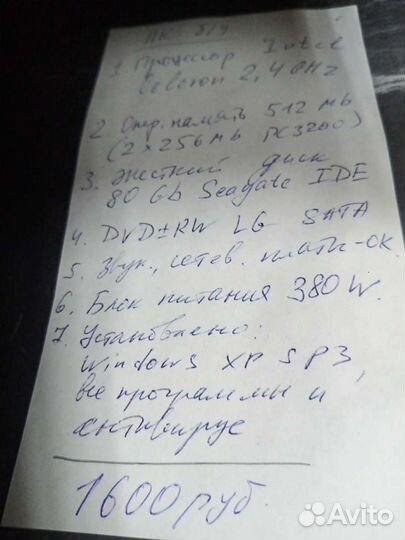 ПК Б/У
1. Процессор Intel
Celeron 2,4 GHz
2. Опер. память 512 Mb
(2 x 256 Mb PC3200)
3. Жесткий диск
80 Gb Seagate IDE
4. DVD±RW LG SATA
5. Звук., сетев. платы - ок.
6. Блок питания 380W.
7. Установлено:
Windows XP SP3,
все программы и
антивирус
1600 руб.
Avito